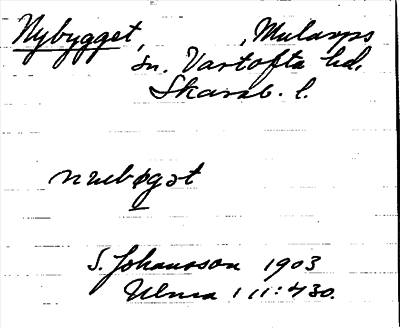 Nybygget, , Mularps
sn. Vartofta hd.
Skarab. l.
nub
S. Johansson 1903
Ulma 111:430.